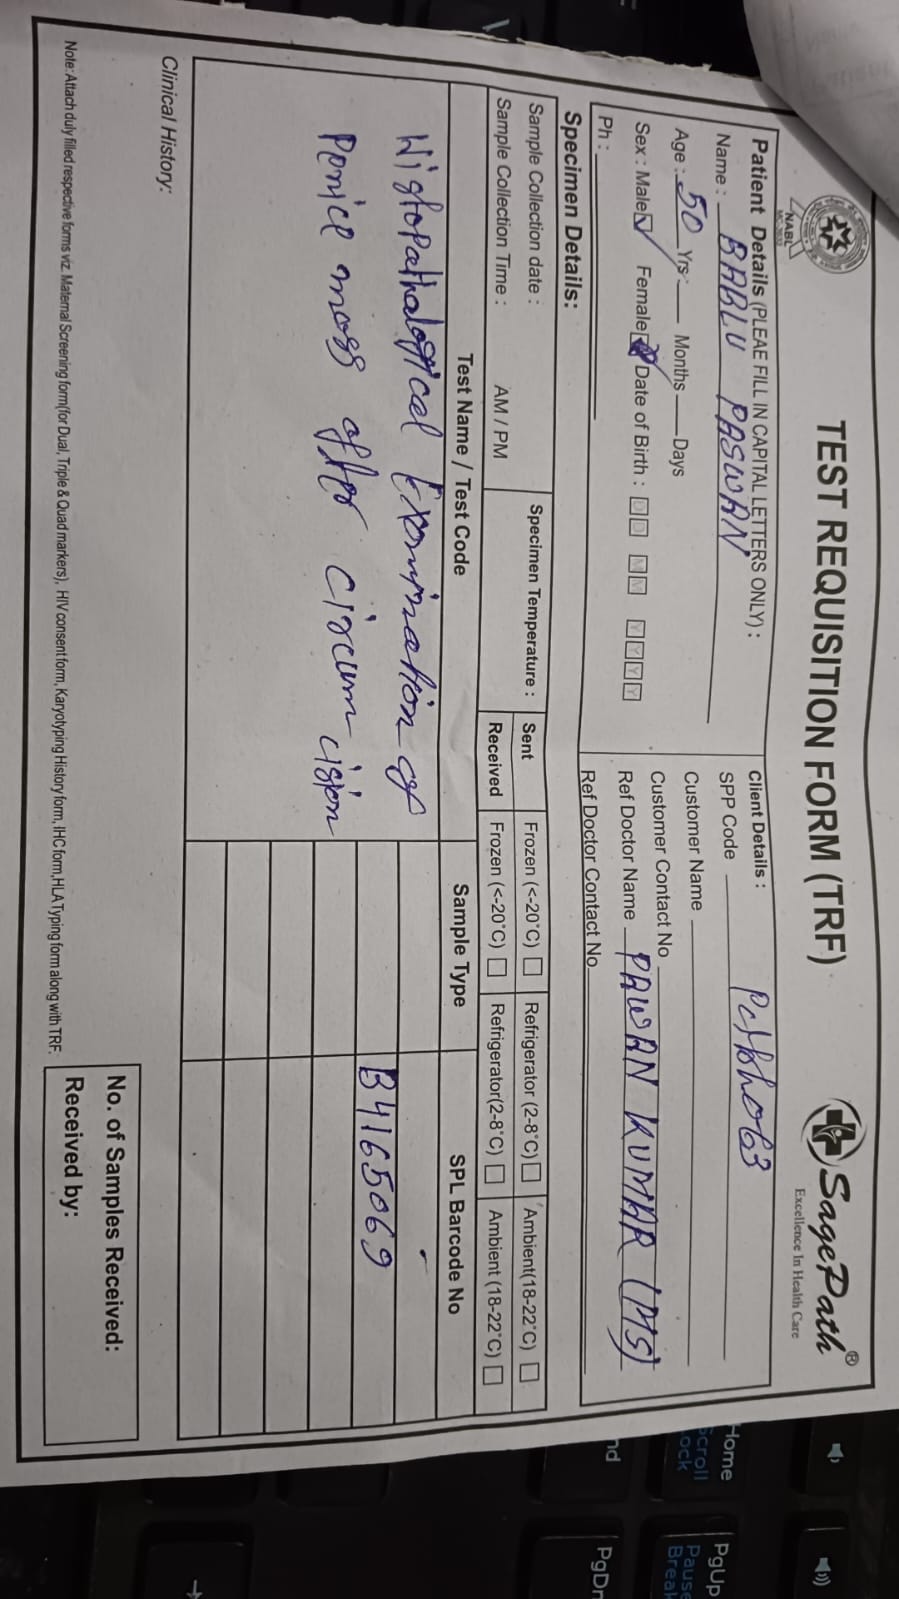 TEST REQUISITION FORM (TRF)
SagePath®
Excellence In Health Care
NABL
Patient Details (PLEAE FILL IN CAPITAL LETTERS ONLY) :
Name : BABLU PASWAN
Age : 50 Yrs. Months Days
Sex : Male Female Date of Birth : D D M M Y Y Y Y
Ph :
Client Details :
SPP Code
Customer Name
Customer Contact No
Ref Doctor Name PAWAN KUMAR (MS)
Ref Doctor Contact No
Specimen Details:
Sample Collection date :
Sample Collection Time : AM / PM
Specimen Temperature :
Sent Frozen (<-20°C) Refrigerator (2-8°C) Ambient(18-22°C)
Received Frozen (<-20°C) Refrigerator(2-8°C) Ambient (18-22°C)
Test Name / Test Code Sample Type SPL Barcode No
Histopathalogical Examination of
Penice mass after circumcision
B4165069
Clinical History:
No. of Samples Received:
Received by:
Note: Attach duly filled respective forms viz. Maternal Screening form(for Dual, Triple & Quad markers), HIV consent form, Karyotyping History form, IHC form, HLA Typing form along with TRF.
Home
Scroll
Lock
PgUp
Pause
Break
PgDn